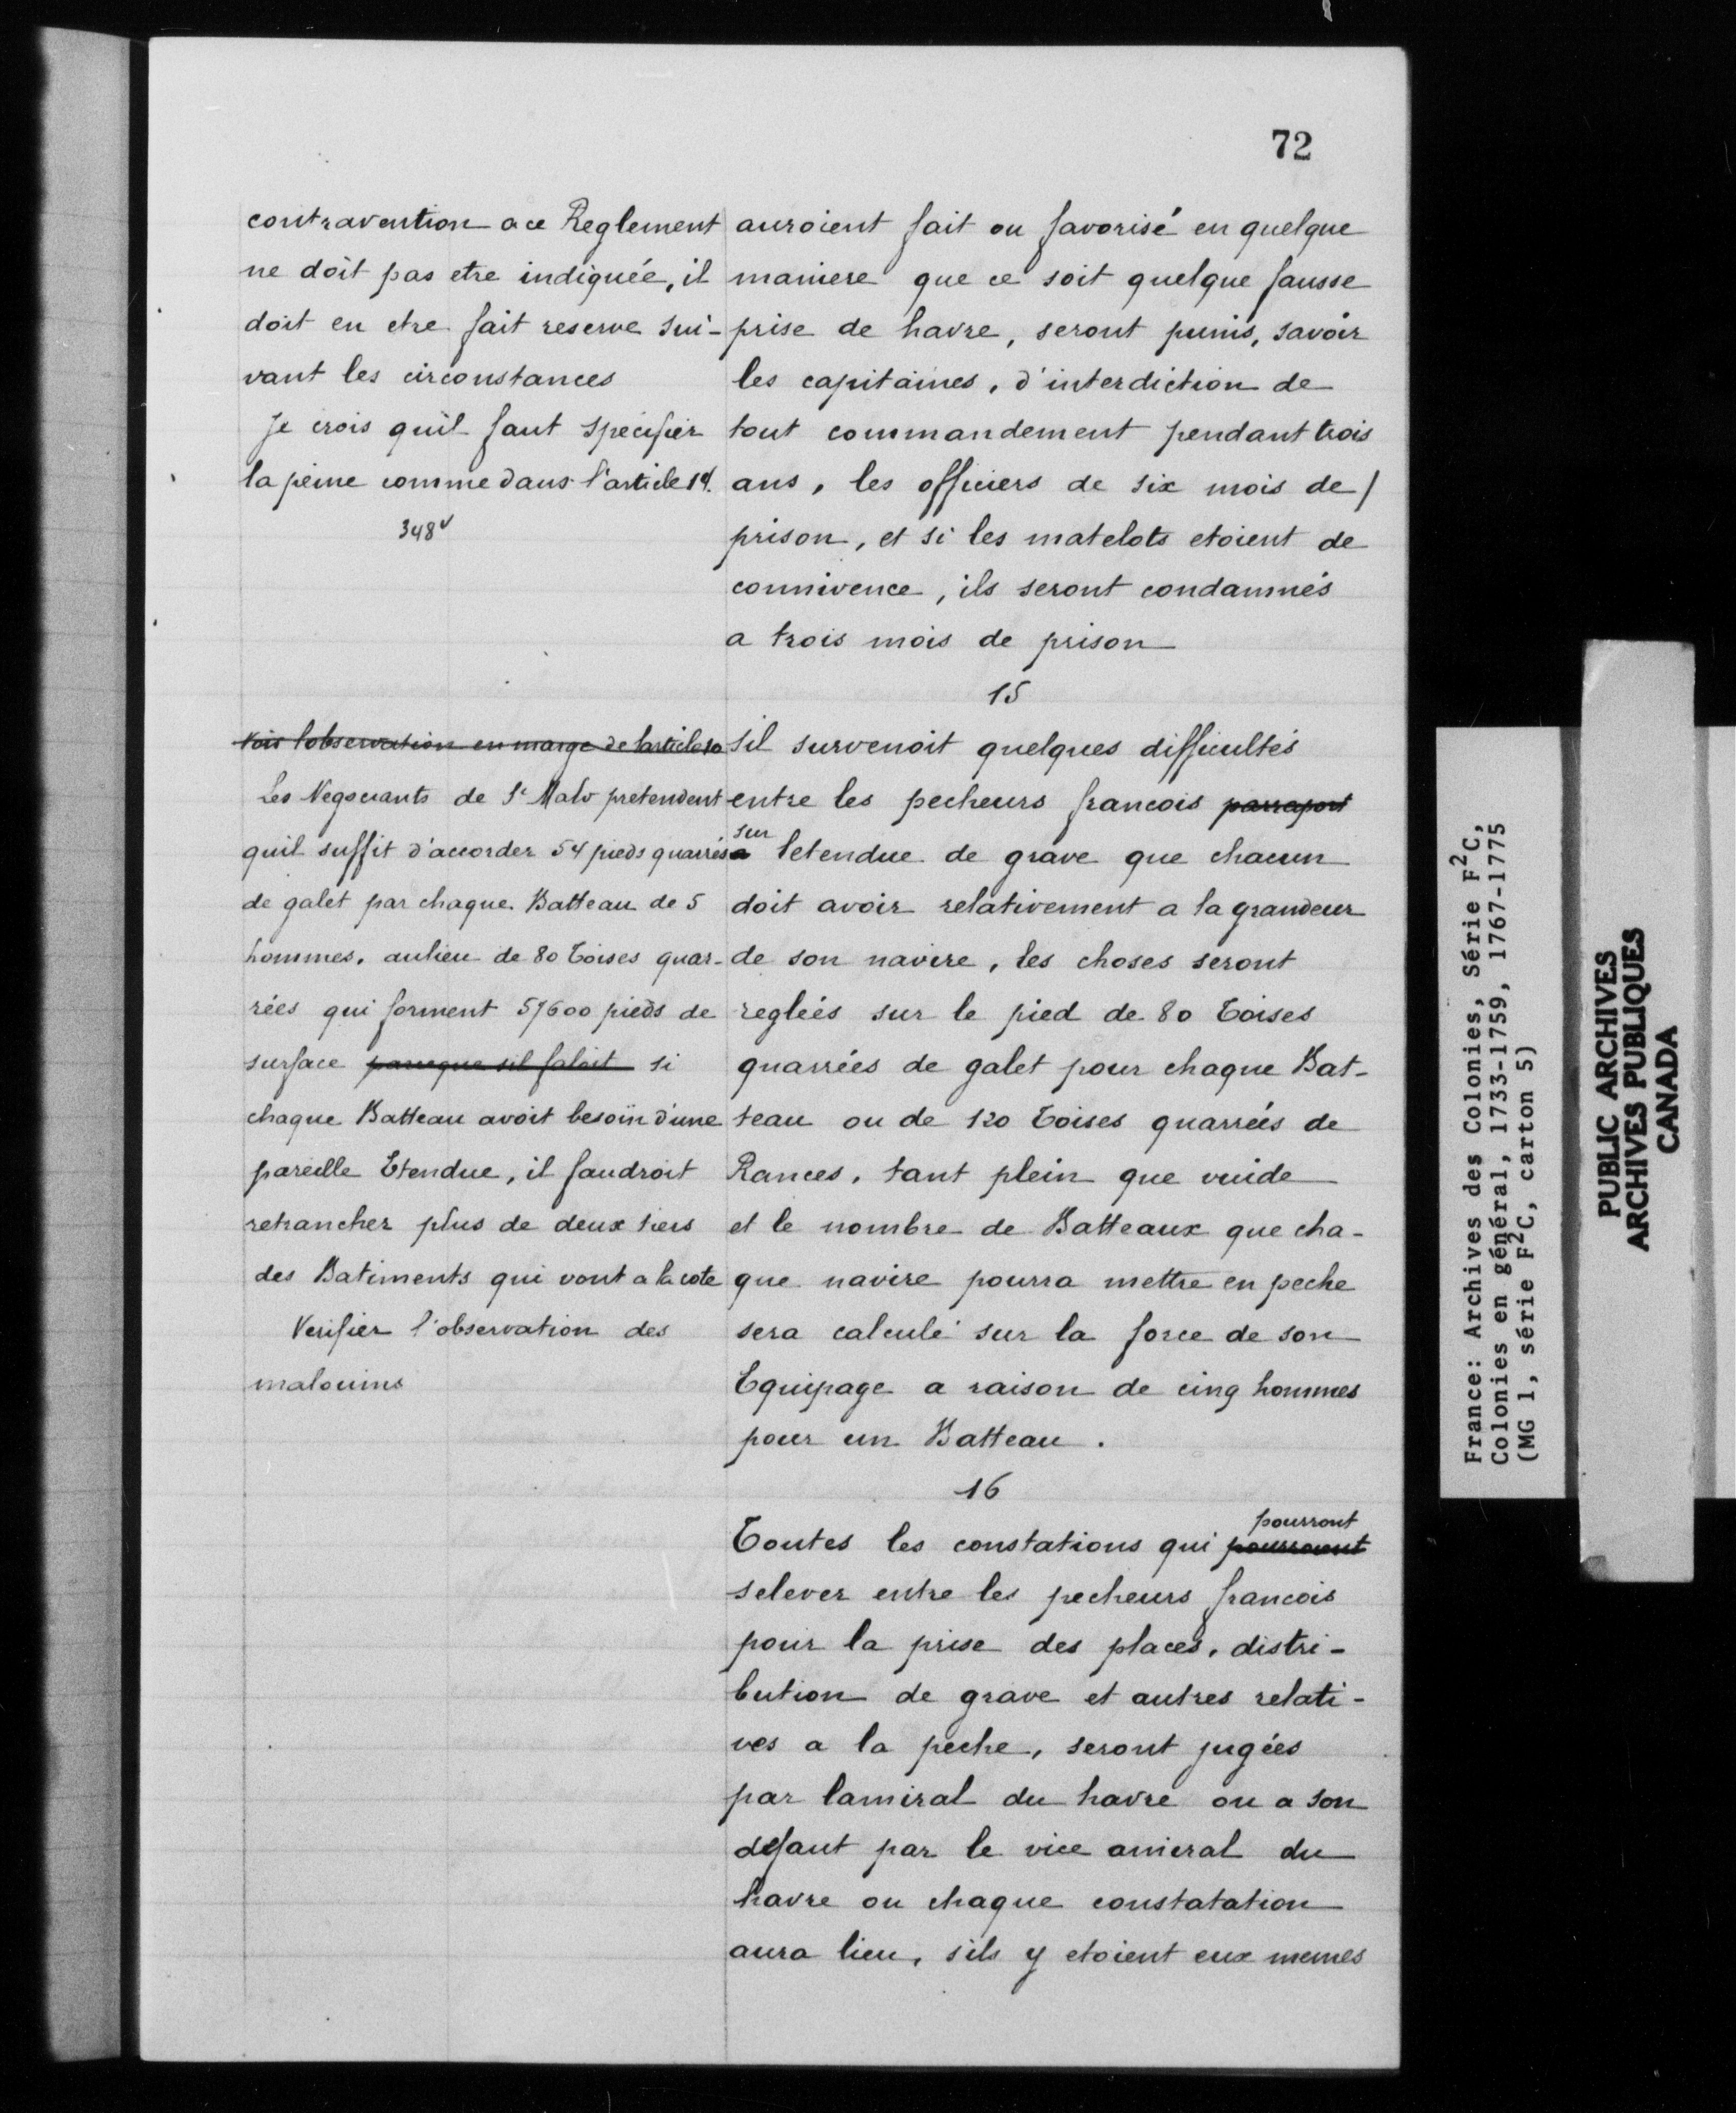 72
contravention a ce Reglement
ne doit pas etre indiquée, il
doit en etre fait reserve sui-
vant les circonstances
Je crois qu'il faut specifier
la peine comme dans l'article 14.
348v
Vois l'observation en marge de l'article 10
Les Negociants de St Malo pretendent
quil suffit d'accorder 54 pieds quarrés
de galet par chaque Batteau de 5
hommes, aulieu de 80 Toises quar-
rées qui forment 57600 pieds de
surface parceque sil faloit si
chaque Batteau avoit besoin d'une
pareille Etendue, il faudroit
retrancher plus de deux tiers
des Batiments qui vont a la cote
Verifier l'observation des
malouins
auroient fait ou favorisé en quelque
maniere que ce soit quelque fausse
prise de havre, seront punis, savoir
les capitaines, d'interdiction de
tout commandement pendant trois
ans, les officiers de six mois de /
prison, et si les matelots etoient de
connivence, ils seront condamnés
a trois mois de prison
15
Sil survenoit quelques difficultés
entre les pecheurs francois parraport
sur
a letendue de grave que chacun
doit avoir relativement a la grandeur
de son navire, les choses seront
regleés sur le pied de 80 Toises
quarrées de galet pour chaque Bat-
teau ou de 120 Toises quarreés de
Rances, tant plein que vuide
et le nombre de Batteaux que cha-
que navire pourra mettre en peche
sera calculé sur la force de son
Equipage a raison de cinq hommes
pour un Batteau.
16
pourront
Toutes les constations qui pourroient
selever entre les pecheurs francois
pour la prise des places, distri-
bution de grave et autres relati-
ves a la peche, seront jugées
par lamiral du havre ou a son
defaut par le vice amiral du
havre ou chaque constatation
aura lieu, s'ils y etoient eux memes
France: Archives des Colonies, Série F2C,
Colonies en général, 1733-1759, 1767-1775
(MG 1, série F2C, carton 5)
PUBLIC ARCHIVES
ARCHIVES PUBLIQUES
CANADA